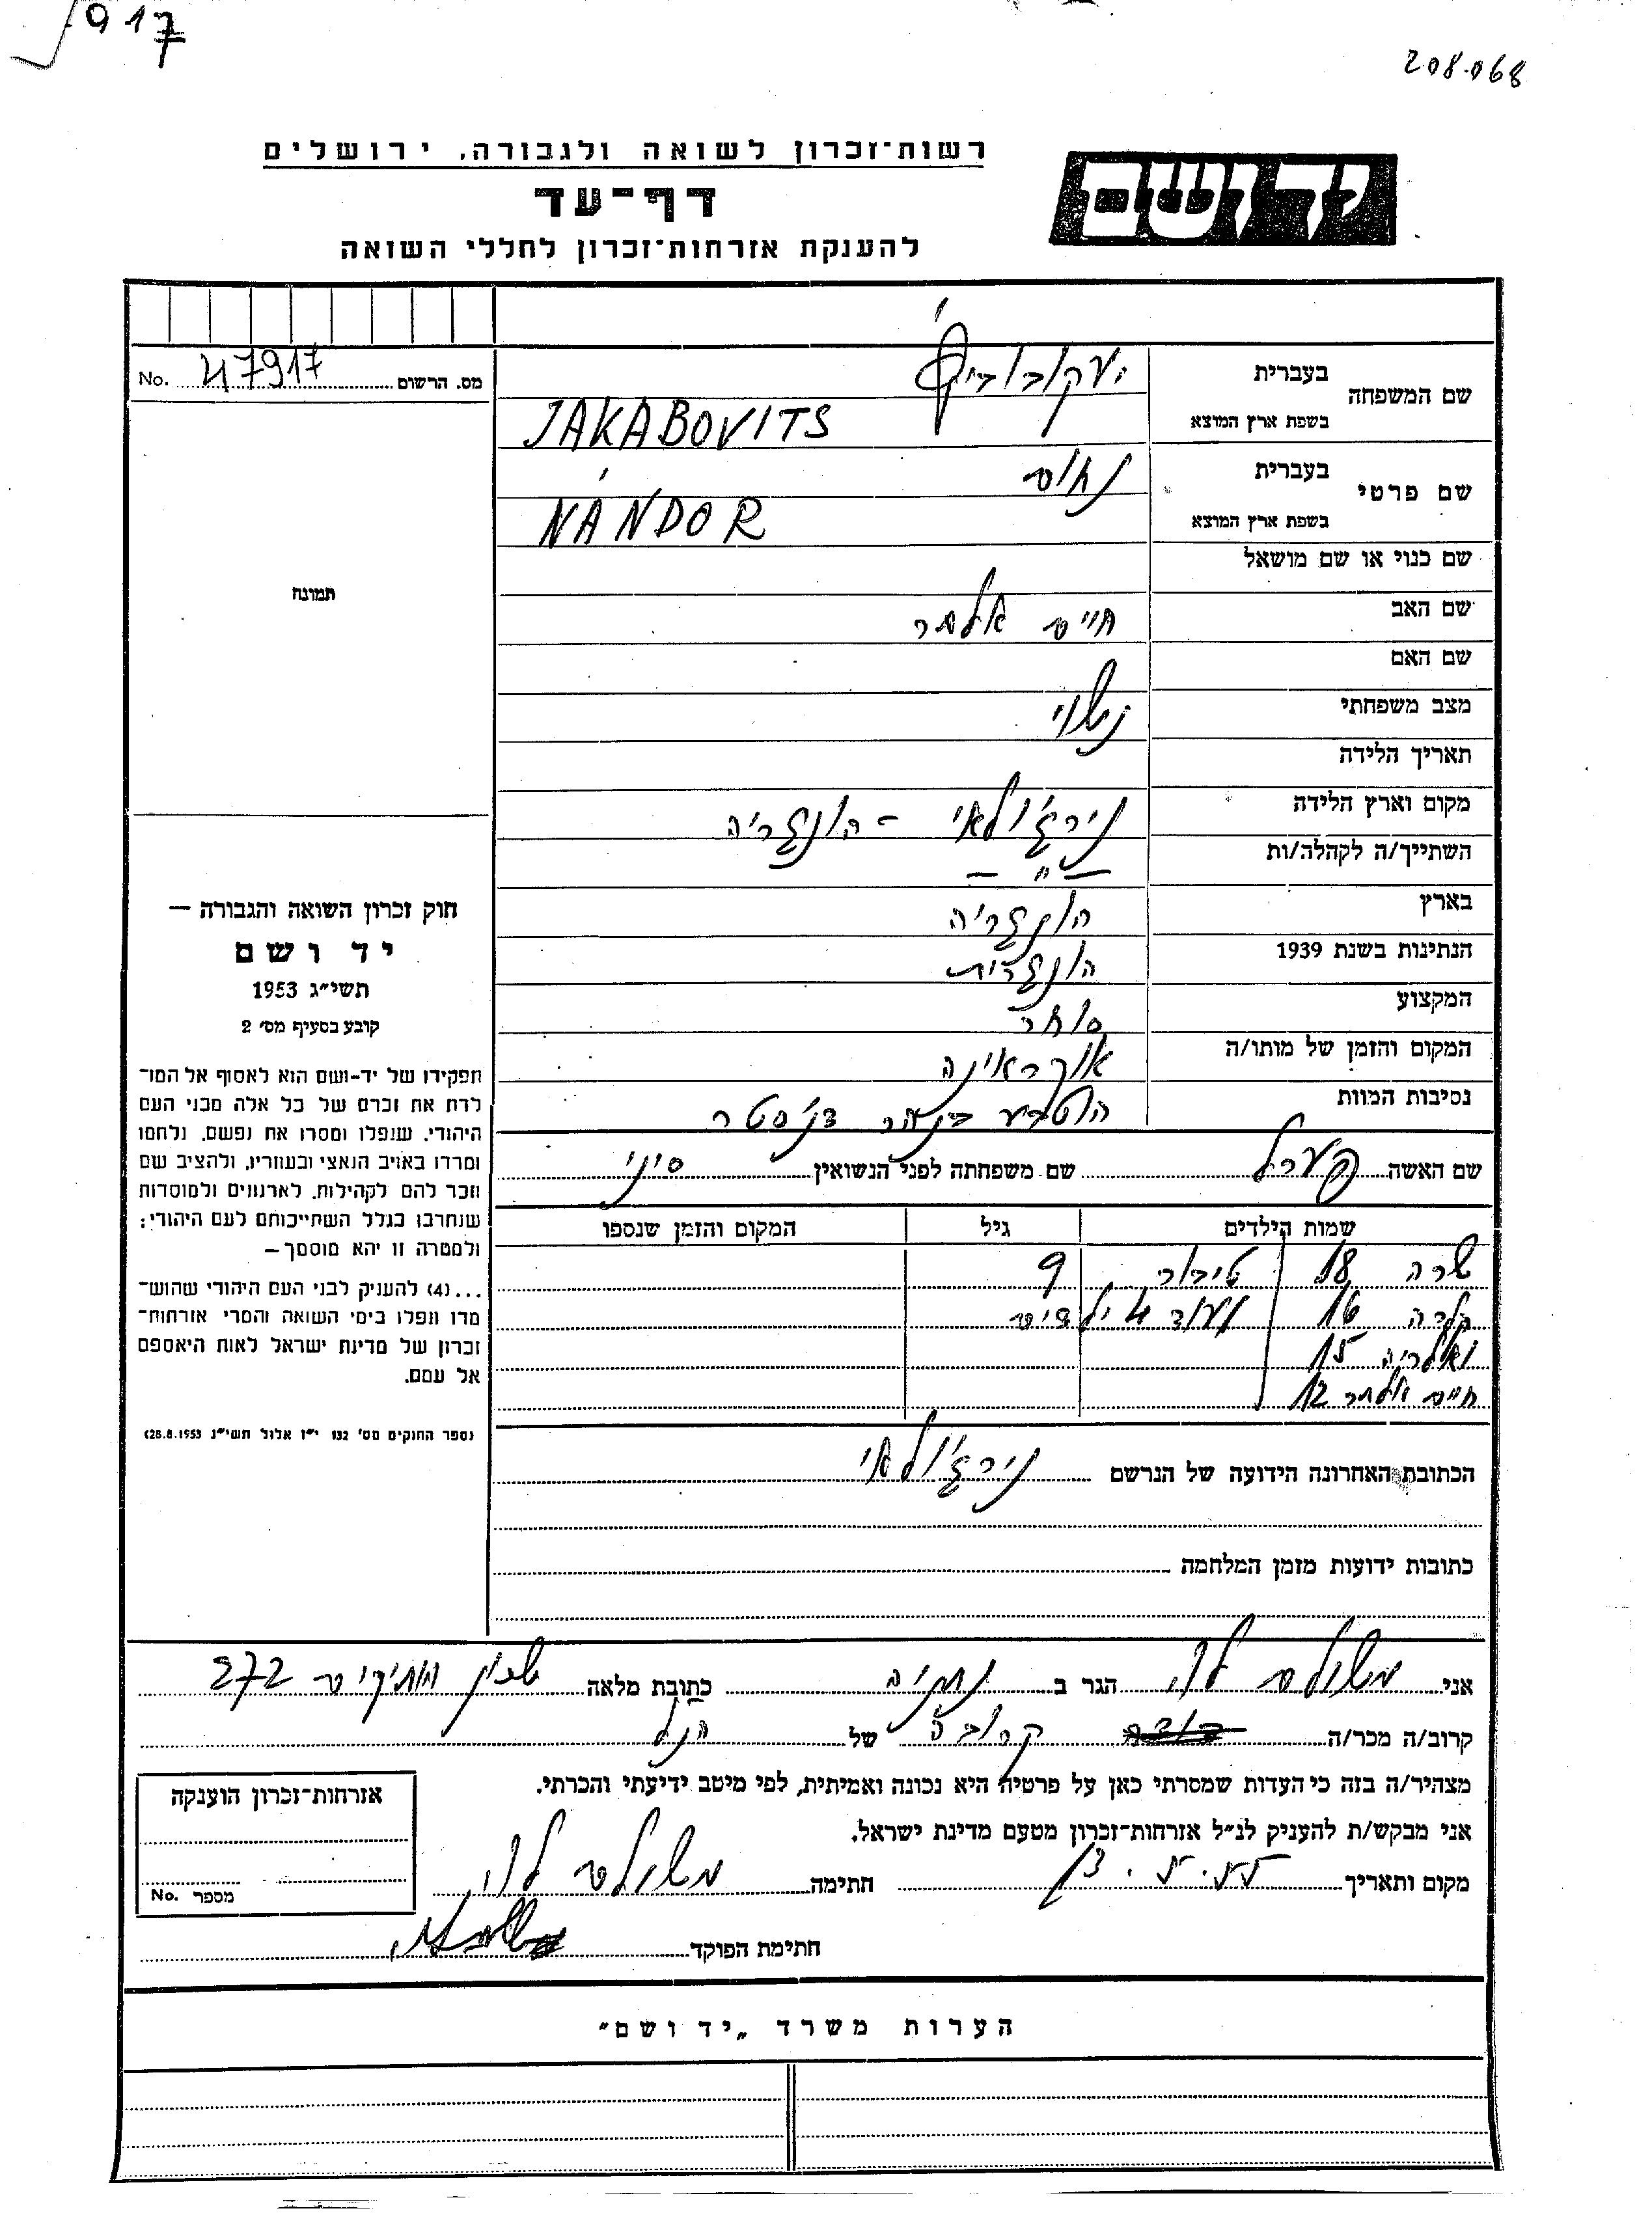 917
208.068
רשות־זכרון לשואה ולגבורה, ירושלים
דף־עד
להענקת אזרחות־זכרון לחללי השואה
יד ושם
מס. הרשום 47917 No.
שם המשפחה
בעברית יעקובוביץ
בשפת ארץ המוצא JAKABOVITS
שם פרטי
בעברית נחום
בשפת ארץ המוצא NÁNDOR
שם כנוי או שם מושאל
שם האב חיים אלטר
שם האם
מצב משפחתי נשוי
תאריך הלידה
מקום וארץ הלידה נירג'ולאי - הונגריה
השתייך/ה לקהלה/ות - " -
בארץ הונגריה
הנתינות בשנת 1939 הונגרית
המקצוע סוחר
המקום והזמן של מותו/ה אוקראינה
נסיבות המוות הוטבע בנהר דניסטר
שם האשה שם משפחתה לפני הנשואין סיני
שמות הילדים גיל המקום והזמן שנספו
שרה 18 טיבור 9
קלרה 16 ועוד 4 ילדים
ואלריה 15
חיים אלתר 12
הכתובת האחרונה הידועה של הנרשם נירג'ולאי
כתובות ידועות מזמן המלחמה
תמונה
חוק זכרון השואה והגבורה —
יד ושם
תשי״ג 1953
קובע בסעיף מס׳ 2
תפקידו של יד-ושם הוא לאסוף אל המו־
לדת את זכרם של כל אלה מבני העם
היהודי, שנפלו ומסרו את נפשם, נלחמו
ומרדו באויב הנאצי ובעוזריו, ולהציב שם
וזכר להם לקהילות, לארגונים ולמוסדות
שנחרבו בגלל השתייכותם לעם היהודי;
ולמטרה זו יהא מוסמך—
...(4) להעניק לבני העם היהודי שהוש־
מדו ונפלו בימי השואה והמרי אזרחות־
זכרון של מדינת ישראל לאות היאספם
אל עמם.
(ספר החוקים מס׳ 132 י״ז אלול תשי״ג 28.8.1953)
אני משולם לוי הגר ב נתניה כתובת מלאה שכון הותיקים 272
קרוב/ה מכר/ה קרובה של הנ"ל
מצהיר/ה בזה כי העדות שמסרתי כאן על פרטיה היא נכונה ואמיתית, לפי מיטב ידיעתי והכרתי.
אני מבקש/ת להעניק לנ״ל אזרחות־זכרון מטעם מדינת ישראל.
מקום ותאריך חתימה משולם לוי
חתימת הפוקד
אזרחות־זכרון הוענקה
מספר No.
הערות משרד „יד ושם״